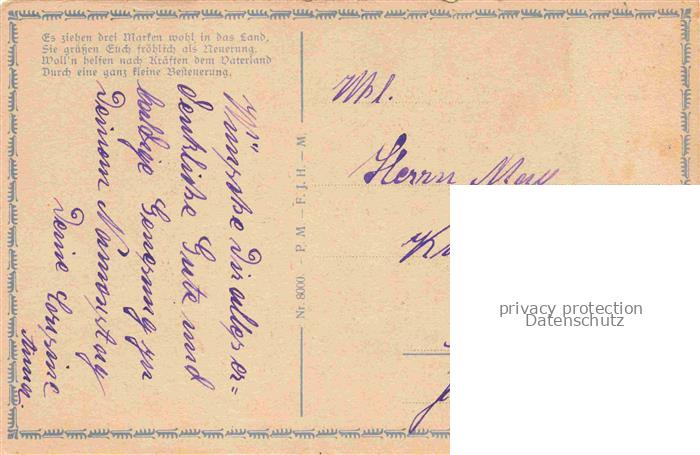 Es ziehen drei Marken wohl in das Land,
Sie grüßen Euch fröhlich als Neuerung.
Woll'n helfen nach Kräften dem Vaterland
Durch eine ganz kleine Besteuerung.
Wünsche Dir alles er=
denkliche Gute und
baldige Genesung zu
Deinem Namenstag
Deine Cousine
Anna.
Nr. 8000. P. M — F. J. H. — M.
Herrn
privacy protection
Datenschutz